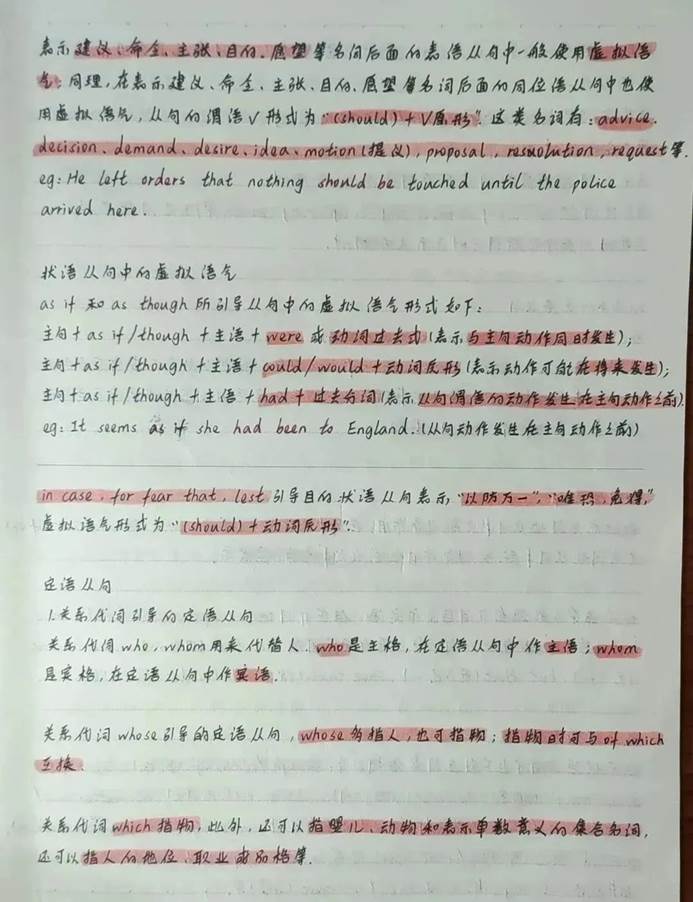 表示建议、命令、主张、目的、愿望等名词后面的表语从句中一般使用虚拟语
气. 同理, 在表示建议、命令、主张、目的、愿望等名词后面的同位语从句中也使
用虚拟语气, 从句的谓语V形式为"(should)+V原形". 这类名词有: advice.
decision、demand、desire、idea、motion(提议), proposal, resuolution, request等.
eg: He left orders that nothing should be touched until the police
arrived here.
状语从句中的虚拟语气
as if 和 as though 所引导从句中的虚拟语气形式如下:
主句+as if/though+主语+were或动词过去式(表示与主句动作同时发生);
主句+as if/though+主语+could/would+动词原形(表示动作可能在将来发生);
主句+as if/though+主语+had+过去分词(表示从句谓语的动作发生在主句动作之前).
eg: It seems as if she had been to England.(从句动作发生在主句动作之前)
in case, for fear that, lest引导目的状语从句表示"以防万一","唯恐、免得,"
虚拟语气形式为"(should)+动词原形".
定语从句
1.关系代词引导的定语从句
关系代词who, whom用来代替人. who是主格, 在定语从句中作主语; whom
是宾格, 在定语从句中作宾语.
关系代词whose引导的定语从句, whose多指人, 也可指物; 指物时可与of which
互换.
关系代词which指物, 此外, 还可以指婴儿、动物和表示单数意义的集合名词,
还可以指人的地位、职业或品格等.